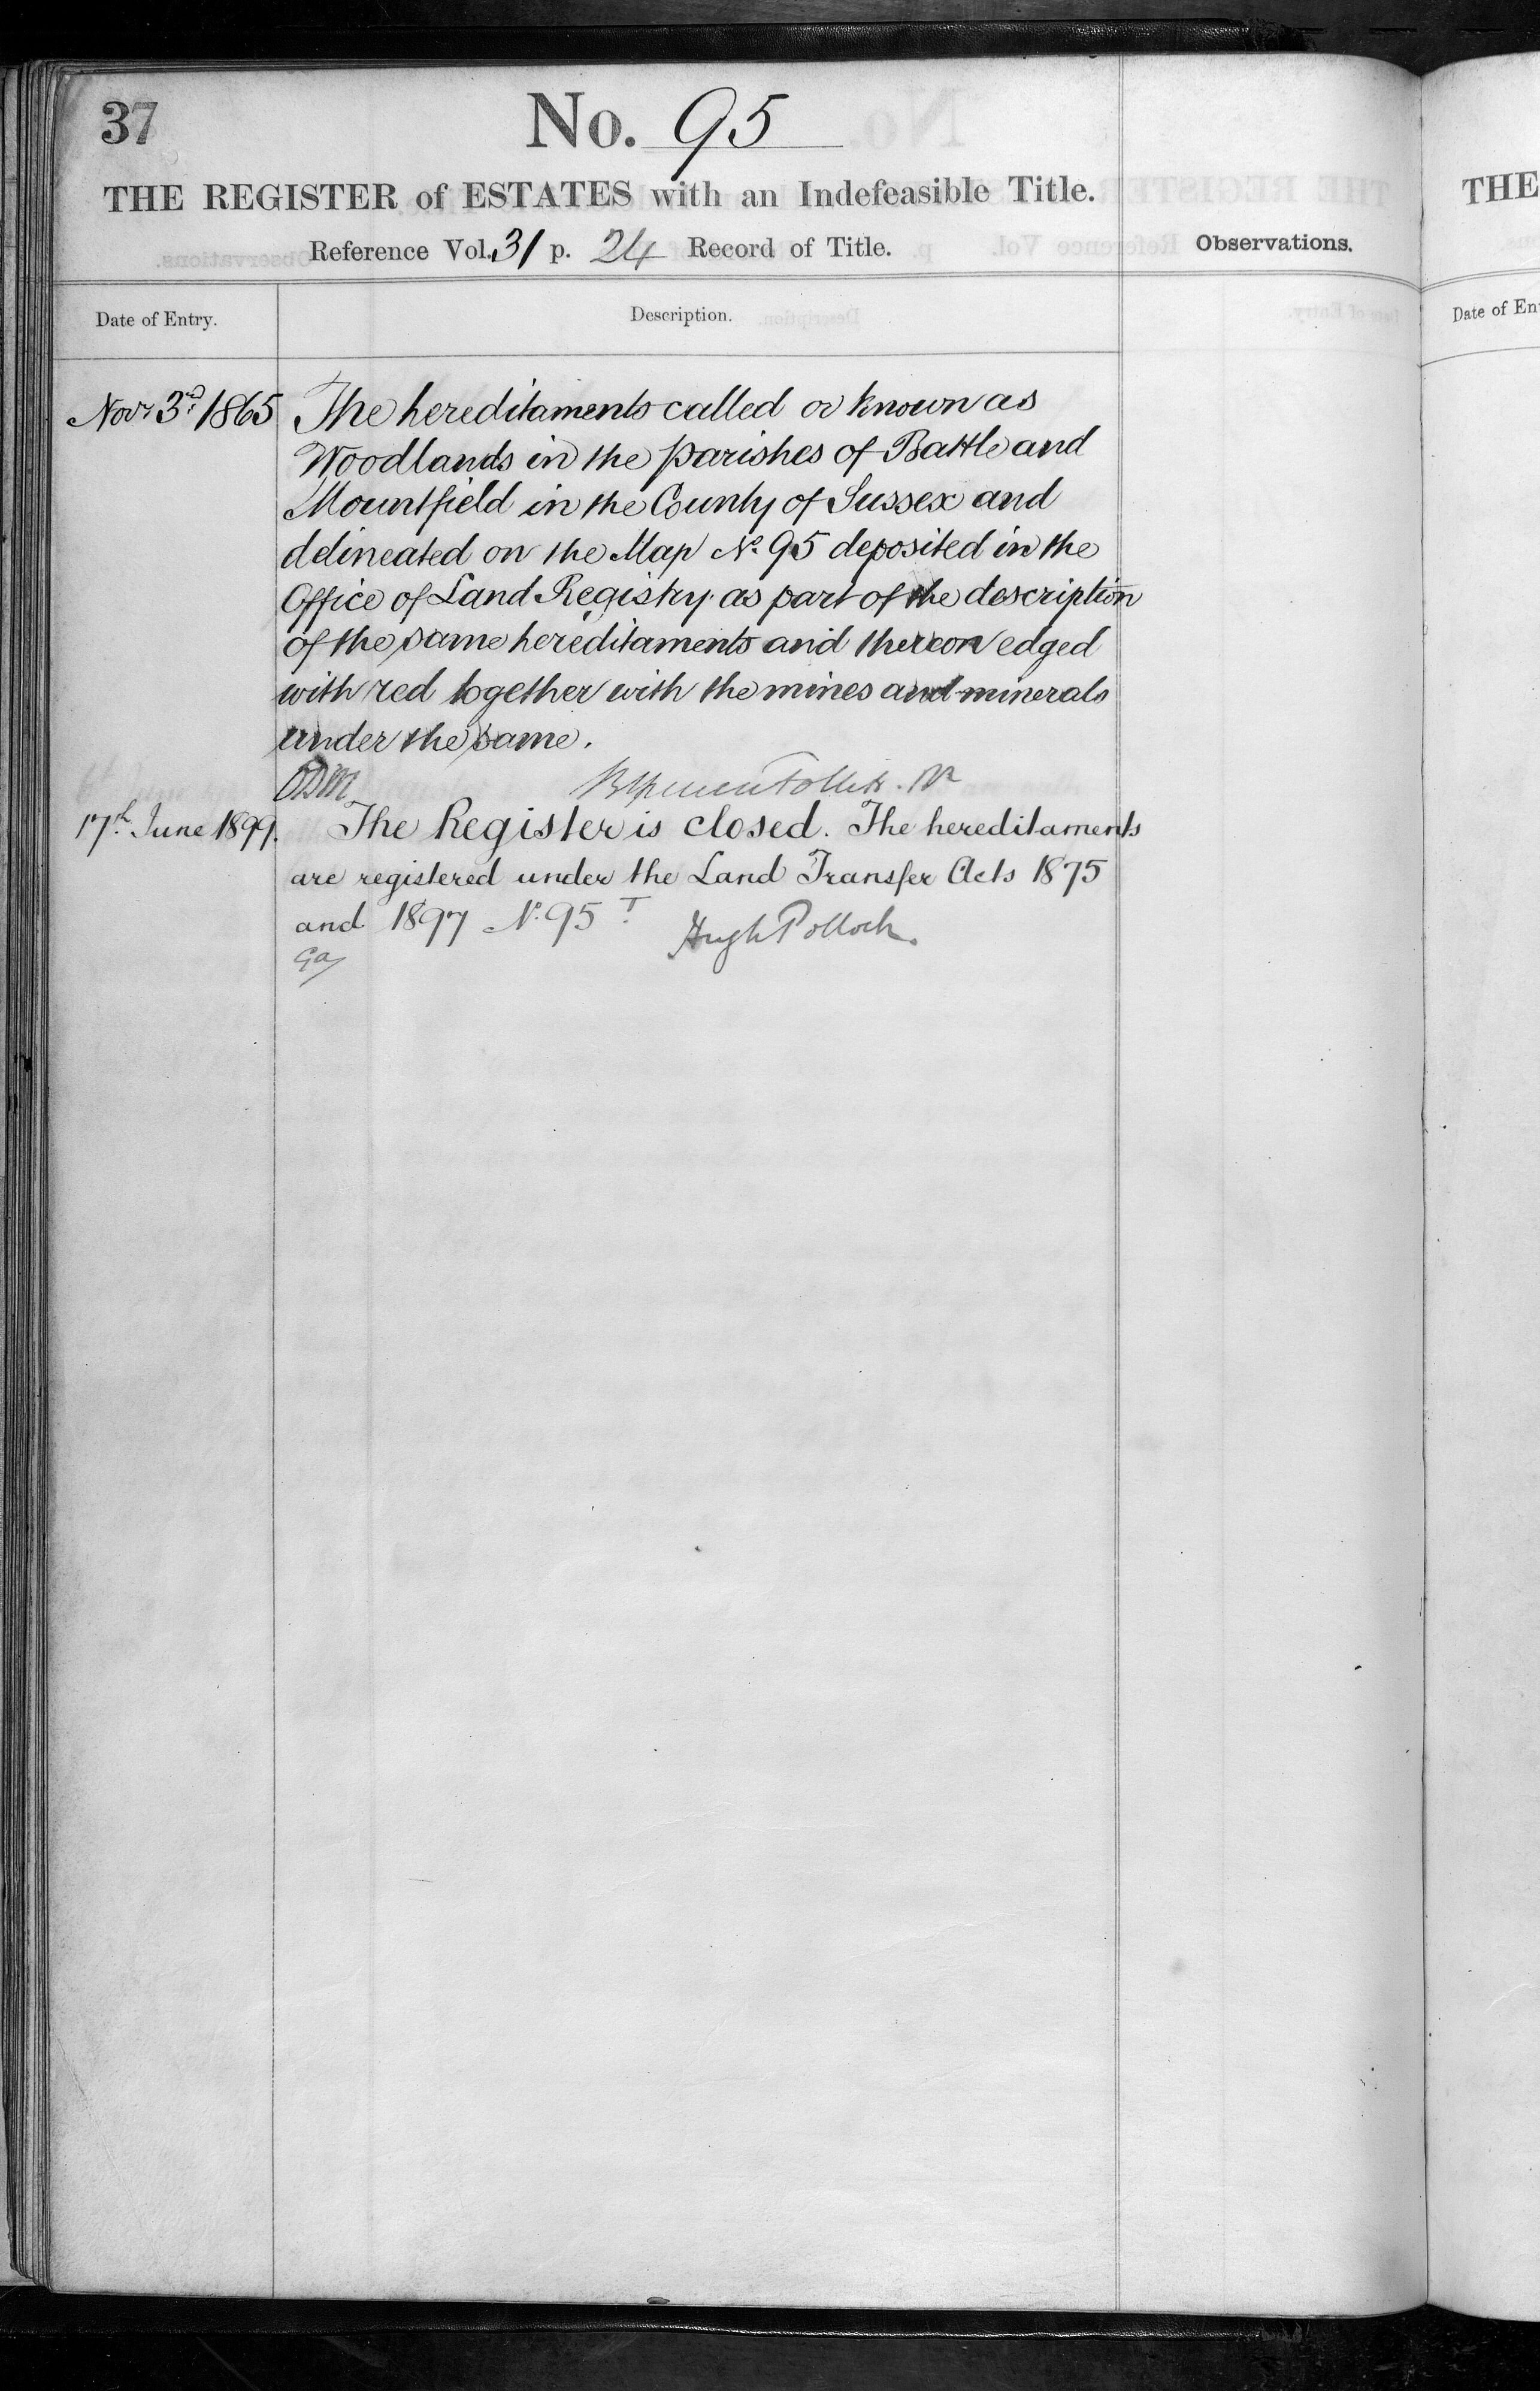 37
No. 95
THE REGISTER of ESTATES with an Indefeasible Title.
Reference Vol. 31 p. 24 Record of Title.
Observations.
Date of Entry.
Description.
Novr 3d 1865
The hereditaments called or known as
Woodlands in the parishes of Battle and
Mountfield in the County of Sussex and
delineated on the Map No. 95 deposited in the
Office of Land Registry as part of the description
of the same hereditaments and thereon edged
with red together with the mines and minerals
under the same.
17th June 1899.
The Register is closed. The hereditaments
are registered under the Land Transfer Acts 1875
and 1897 No. 95 T
Hugh Pollock.
THE
Date of En